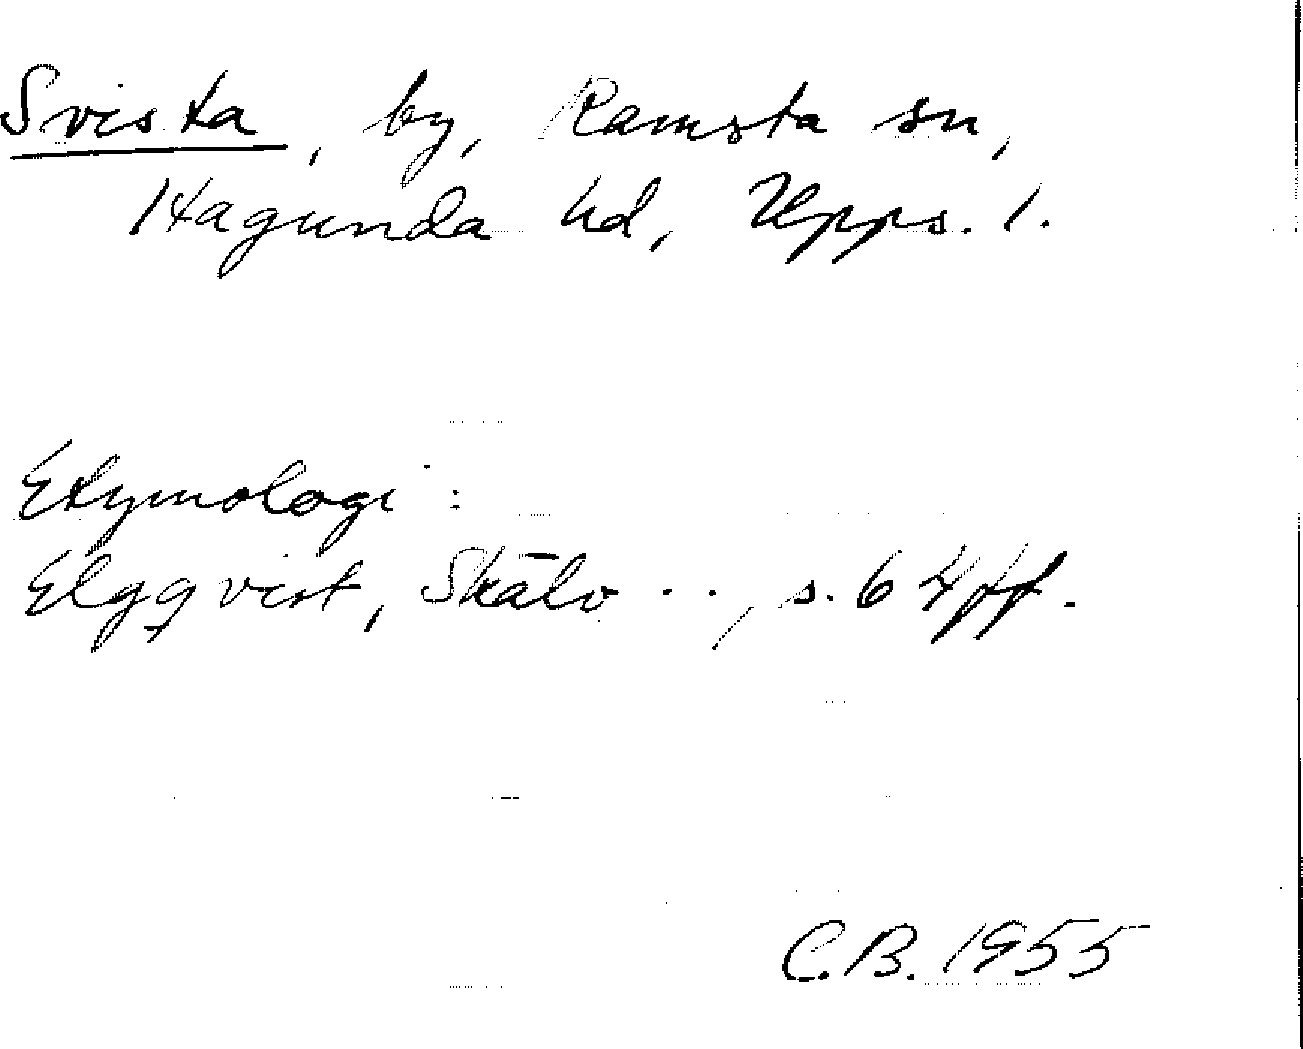 Svista, by, Ramsta sn,
Hagunda hd, Upps. l.
Etymologi:
Elgqvist, Skälv .., s. 64 ff.
C.B. 1955